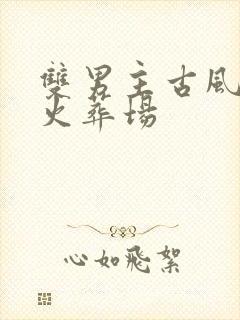 雙男主古風
火葬場
心如飛絮